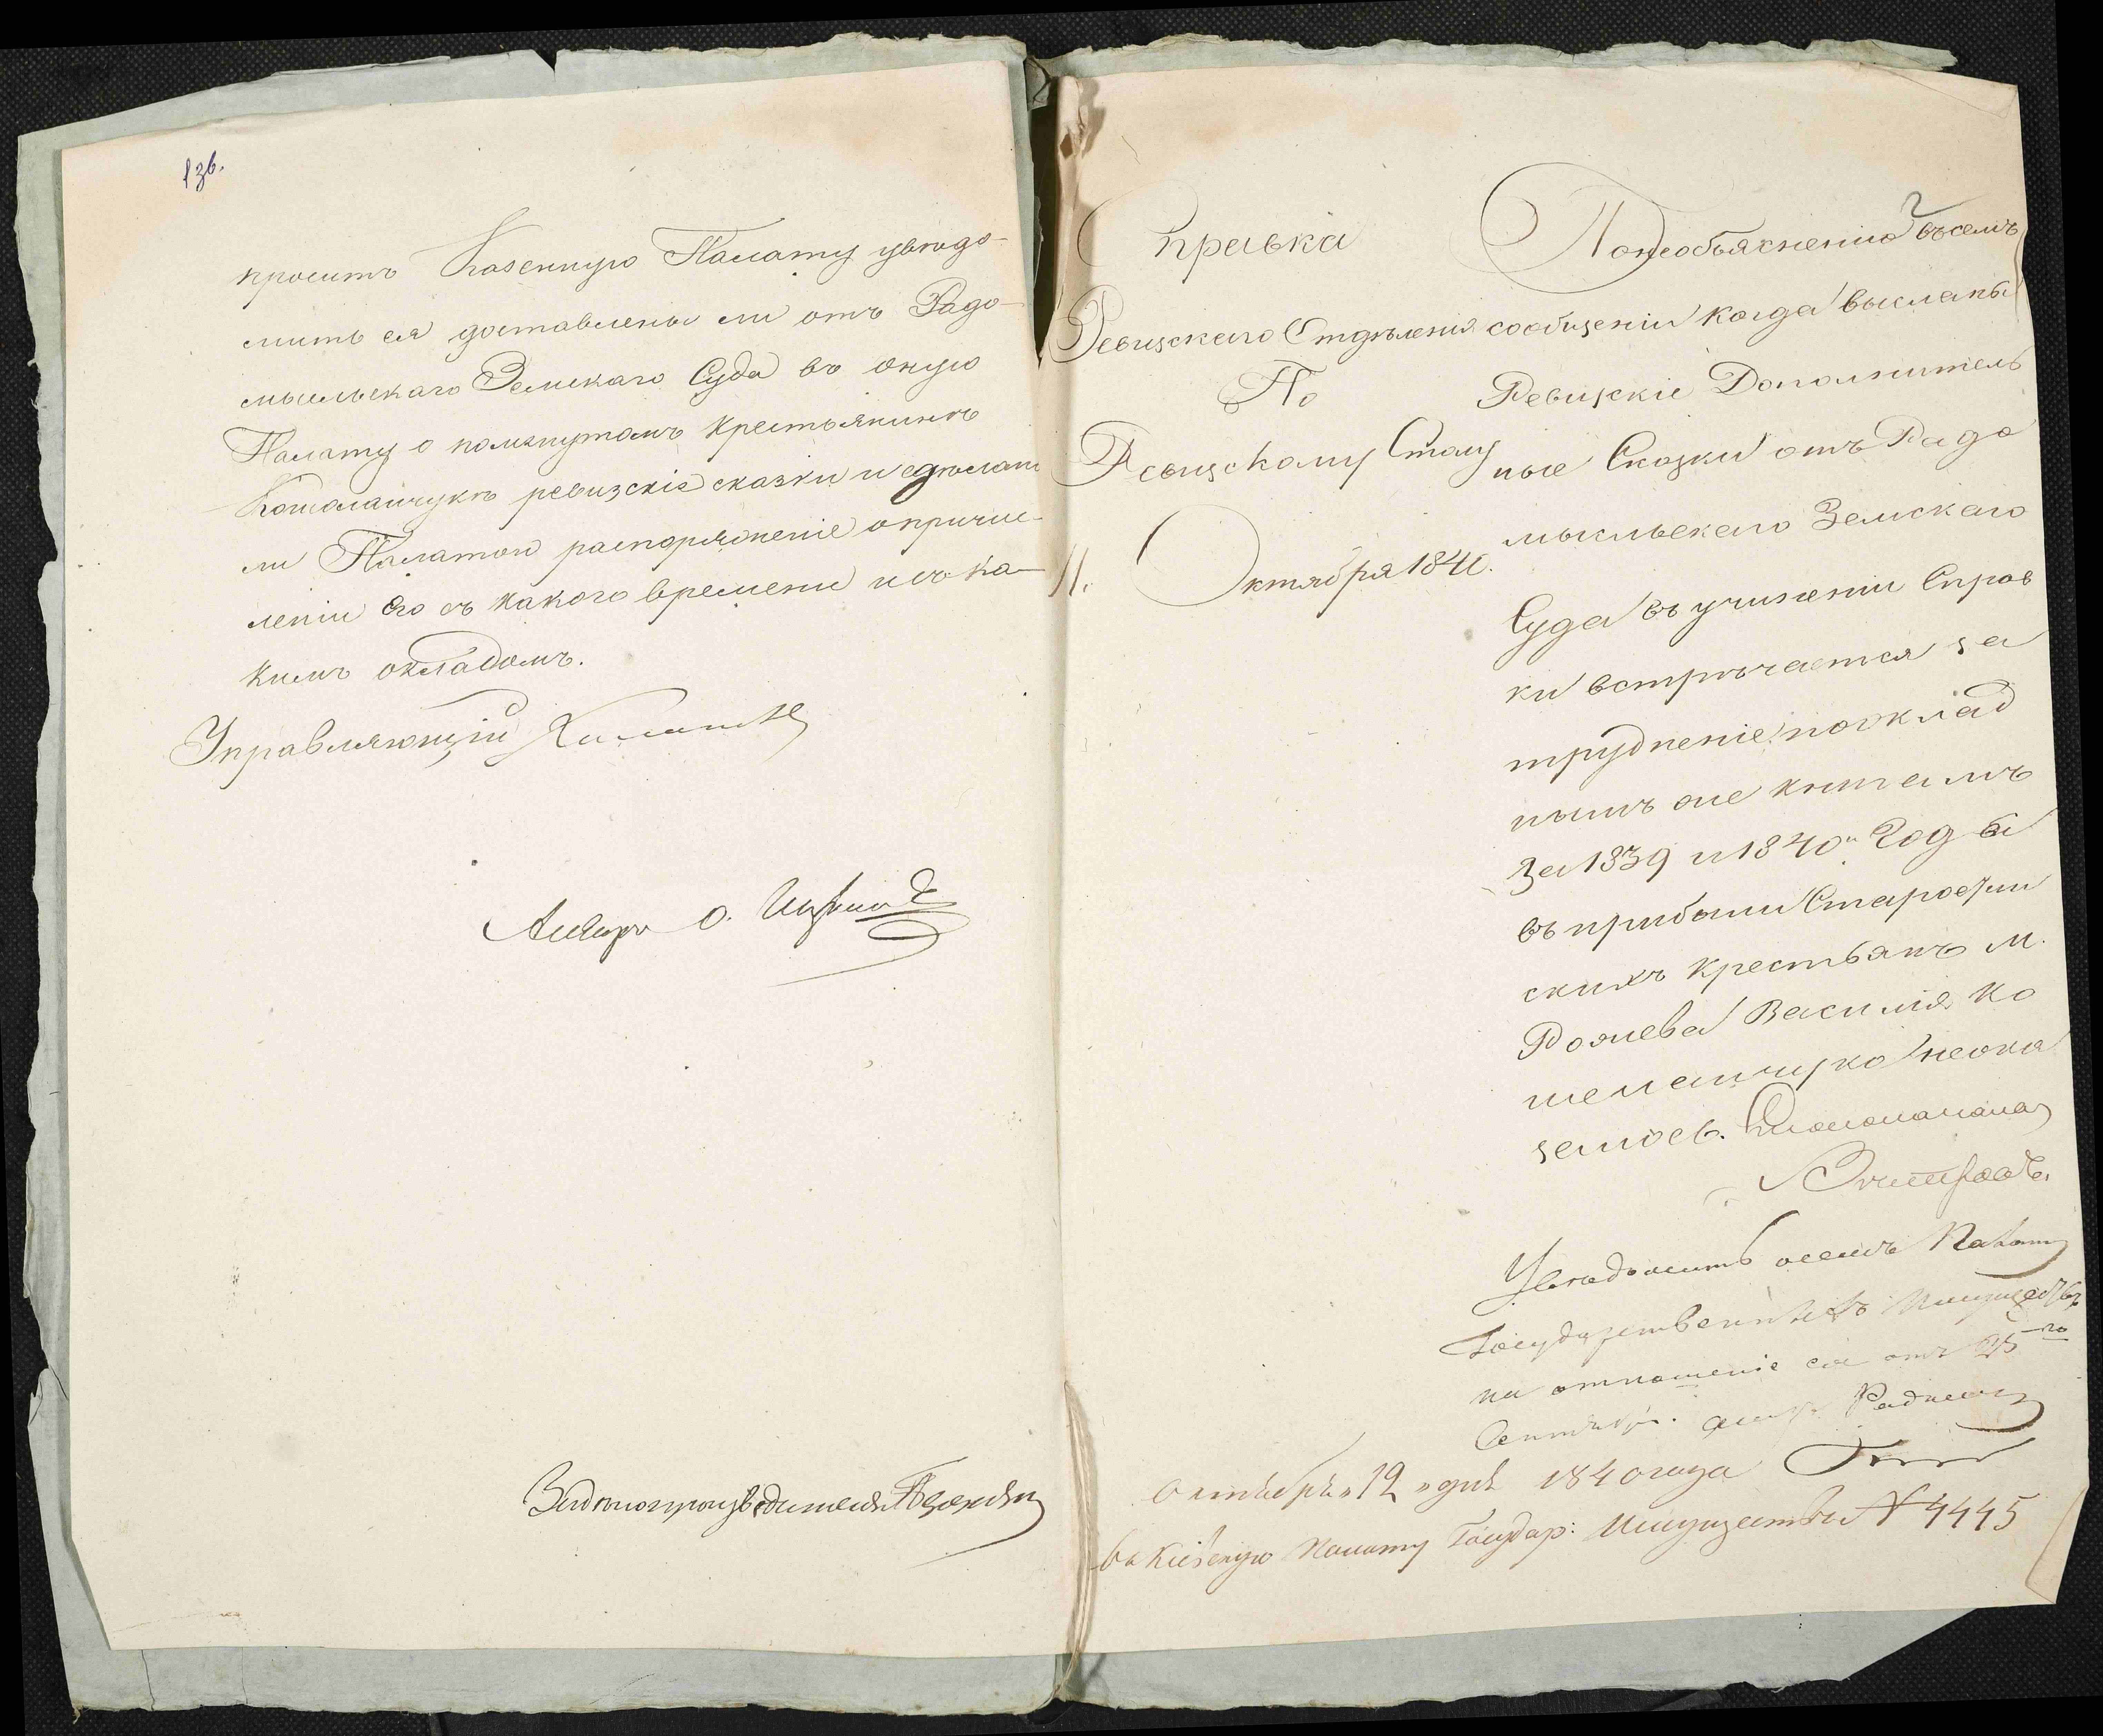 1 зв.
просить Казенную Палату уведо-
мить ея доставлены ли отъ Радо-
мысльскаго Земскаго Суда въ оную
Палату о помянутомъ крестьянинѣ
ревизскіе сказки и сдѣлано
ли Палатою распоряженіе о причис-
леніи его съ какого времени и съ ка-
кимъ окладомъ.
Управляющій
Справка
Ревизскаго Отдѣленія
По
Ревизскому Столу
11. Октября 1840.
По необъясненію въ семъ
сообщеніи когда высланы
Ревизскіе Дополнитель
ные Сказки отъ Радо
мысльскаго Земскаго
Суда въ учиненіи Справ
ки встрѣчается за
трудненіе, по оклад
нымъ же книгамъ
За 1839 и 1840й Годы
въ прибыли Старостин
скихъ крестьянъ м.
Василія Ко
неока
залось.
Увѣдомить о семъ Палату
Государственныхъ Имуществъ
на отношеніе ея отъ 25го
Сентября.
Октября 12 дня 1840 года
въ Кіевскую Палату Государ: Имуществъ № 4445